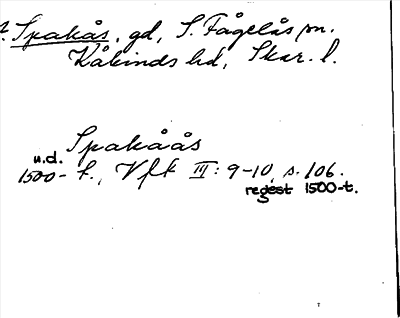 Spakås, gd, S. Fågelås sn.
Kåkinds hd, Skar. l.
Spakåås
u.d.
1500-t., Vfk III: 9-10, s. 106.
regest 1500-t.